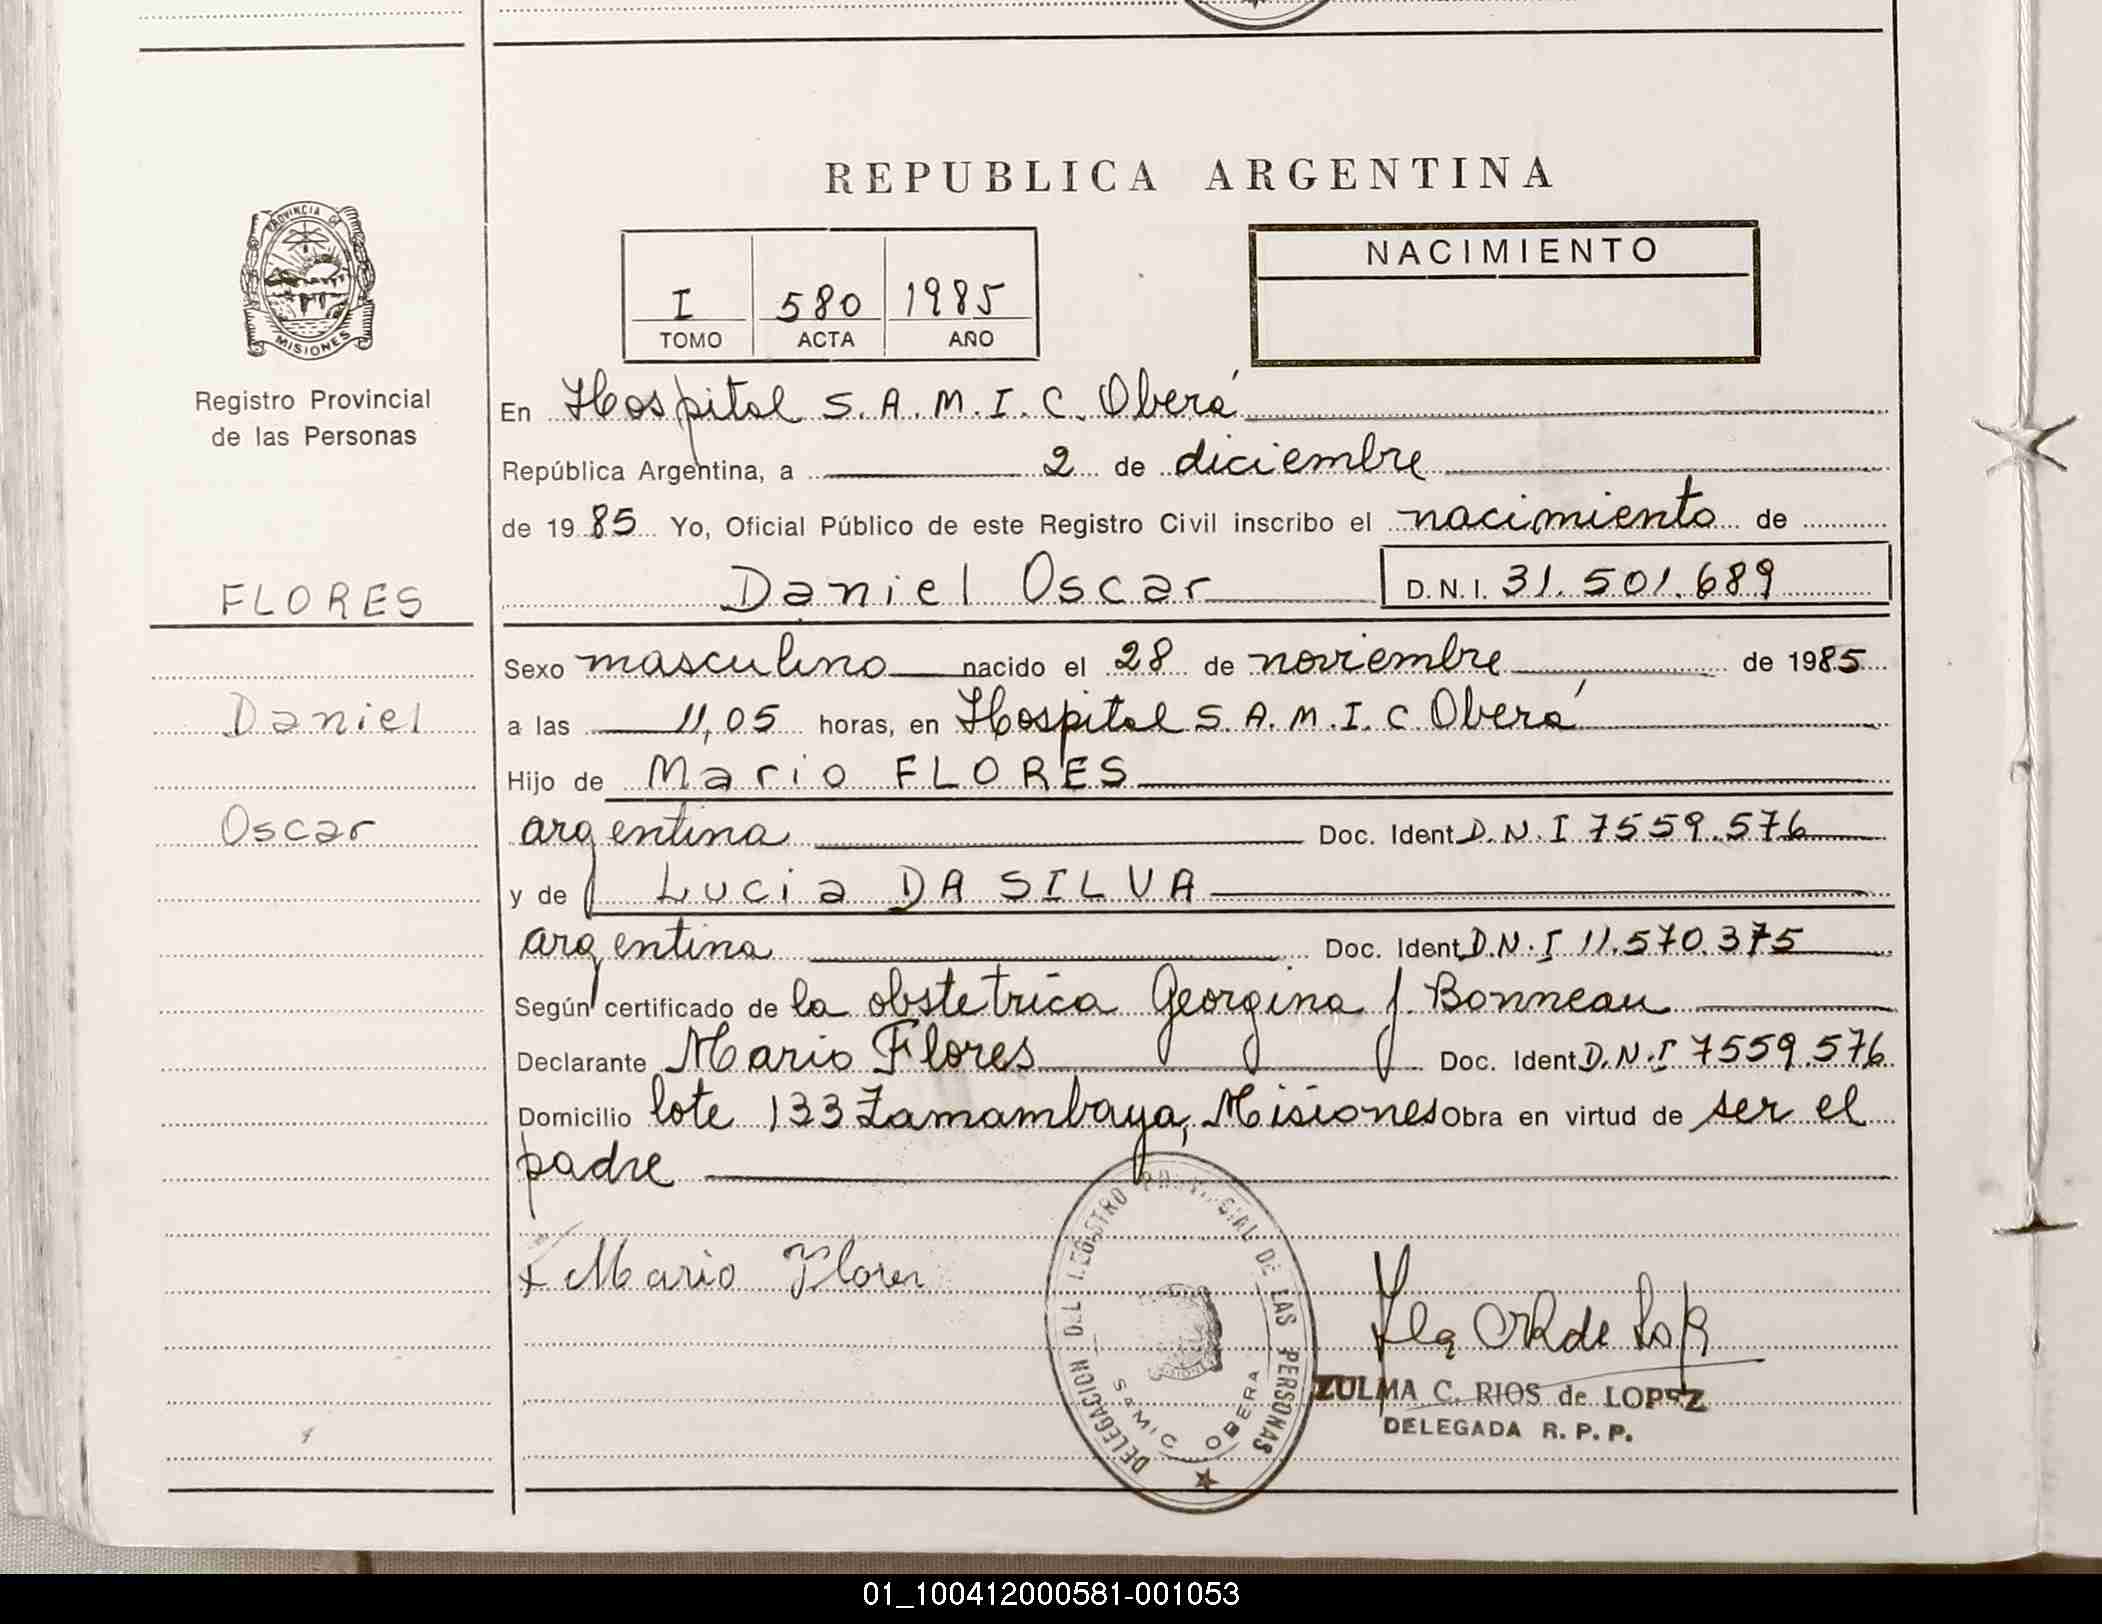 REPUBLICA ARGENTINA
PROVINCIA DE
MISIONES
Registro Provincial
de las Personas
FLORES
Daniel
Oscar
I 580 1985
TOMO ACTA AÑO
NACIMIENTO
En Hospital S.A.M.I.C. Oberá
República Argentina, a 2 de diciembre
de 1985 Yo, Oficial Público de este Registro Civil inscribo el nacimiento de
Daniel Oscar D.N.I. 31.501.689
Sexo masculino nacido el 28 de noviembre de 1985
a las 11,05 horas, en Hospital S.A.M.I.C Oberá
Hijo de Mario FLORES
argentina Doc. Ident D.N.I 7559.576
y de Lucia DA SILVA
argentina Doc. Ident D.N.I 11.570.375
Según certificado de la obstetrica Georgina J. Bonneau
Declarante Mario Flores Doc. Ident D.N.I 7559.576
Domicilio lote 133 Zamambaya, Misiones Obra en virtud de ser el
padre
x Mario Flores
DELEGACION DEL REGISTRO PROVINCIAL DE LAS PERSONAS
SAMIC OBERA
ZULMA C. RIOS de LOPEZ
DELEGADA R. P. P.
01_100412000581-001053